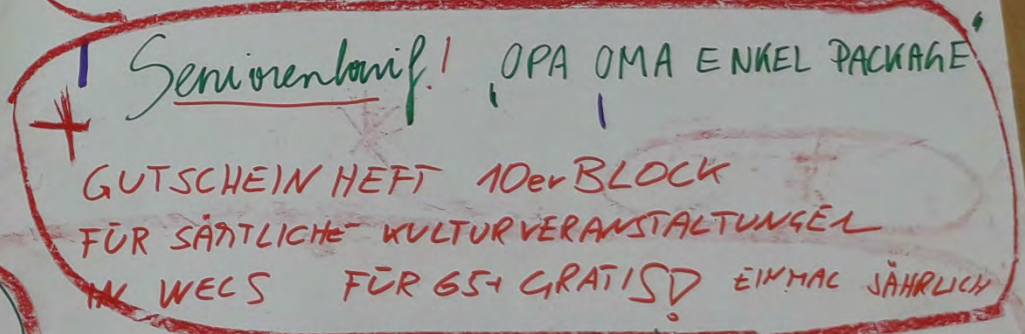 Seniorentarif! "OPA OMA ENKEL PACKAGE"
+
GUTSCHEINHEFT 10er BLOCK
FÜR SÄMTLICHE KULTURVERANSTALTUNGEN
IN WELS FÜR 65+ GRATIS? EINMAL JÄHRLICH